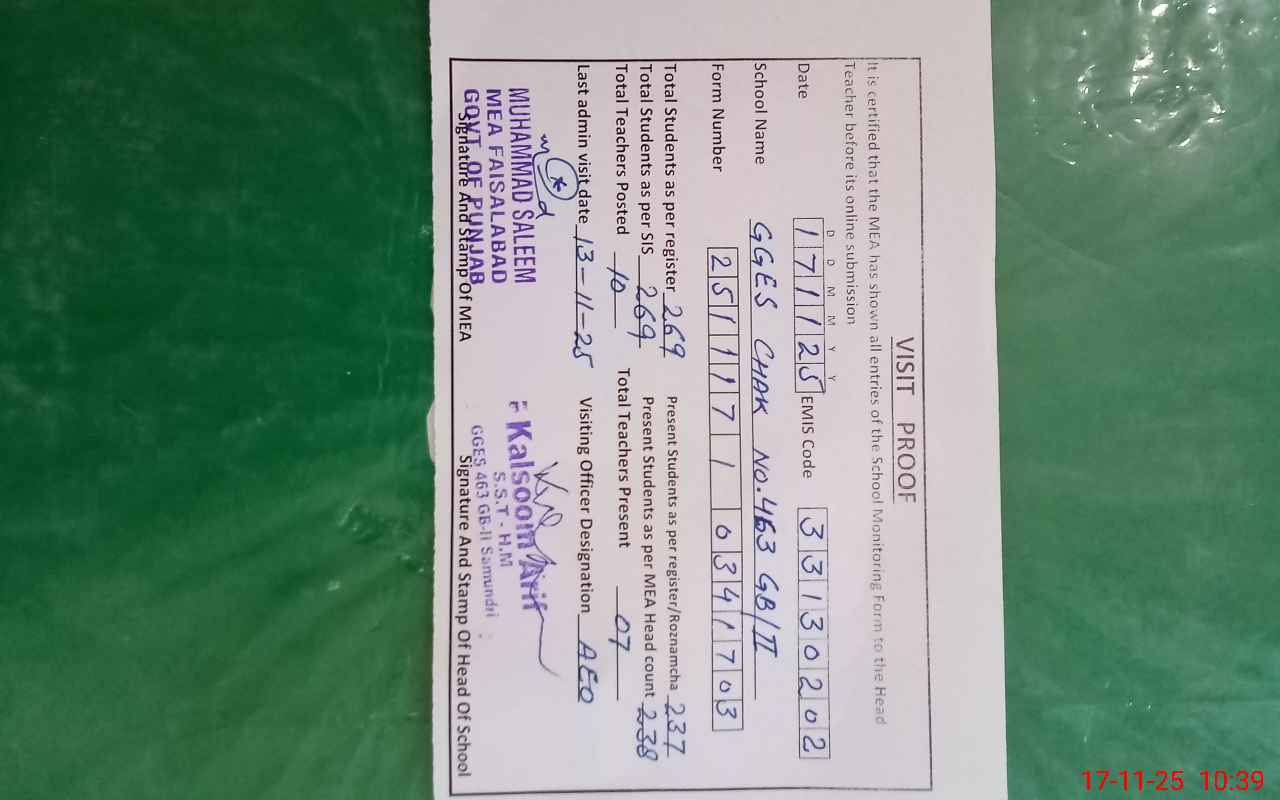 VISIT PROOF
It is certified that the MEA has shown all entries of the School Monitoring Form to the Head
Teacher before its online submission
D D M M Y Y
Date 171125 EMIS Code 33130202
School Name GGES CHAK NO.463 GB/II
Form Number 2511171 0341703
Total Students as per register 269 Present Students as per register/Roznamcha 237
Total Students as per SIS 269 Present Students as per MEA Head count 238
Total Teachers Posted 10 Total Teachers Present 07
Last admin visit date 13-11-25 Visiting Officer Designation AEO
MUHAMMAD SALEEM
MEA FAISALABAD
GOVT OF PUNJAB
Signature And Stamp Of MEA
Kalsoom Arif
S.S.T - H.M
GGES 463 GB-II Samundri
Signature And Stamp Of Head Of School
17-11-25 10:39